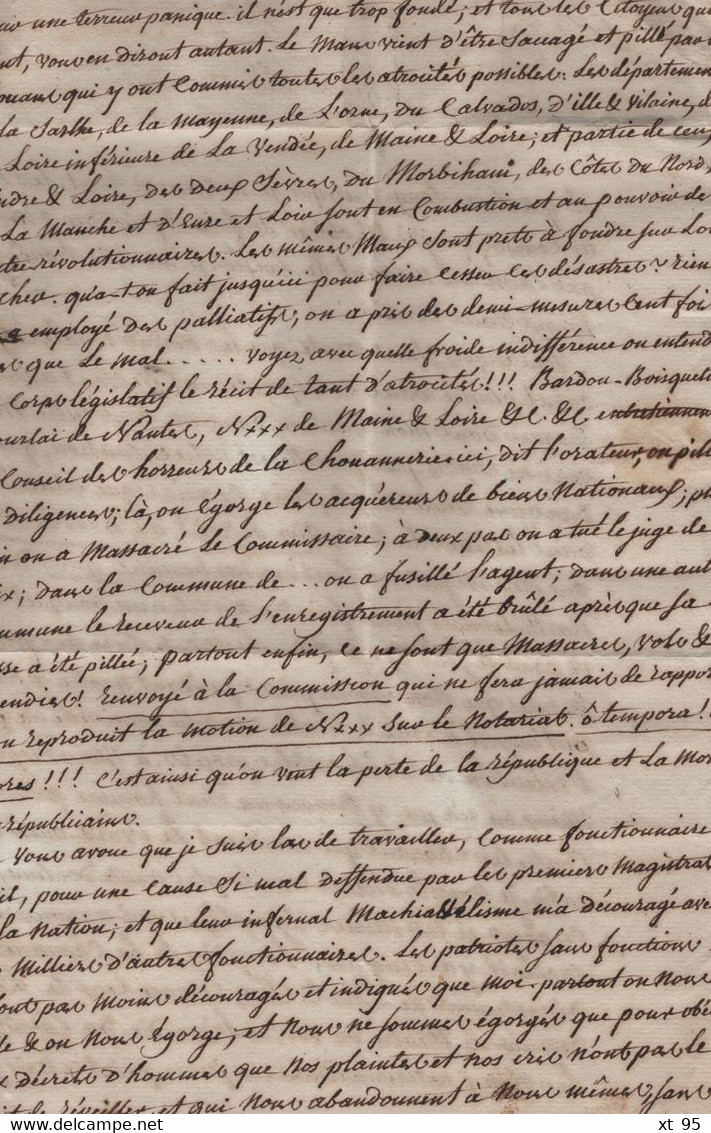 une terreur panique. il n'est que trop fondé; et tous les Citoyens qui
vous en diront autant. Le Mans vient d'être Saccagé et pillé par
qui y ont Commis toutes les atrocités possibles. Les départemens
la Sarthe, de la Mayenne, de L'orne, du Calvados, d'ille & vilaine, de
Loire inférieure de La Vendée, de Maine & Loire; et partie de ceux
& Loire, des Deux Sèvres, du Morbihan, des Côtes du Nord,
La Manche et d'Eure et Loir sont en Combustion et au pouvoir de
révolutionnaires. Les mêmes Maux sont prêts à fondre sur Loi
cher. qu'a-t-on fait jusqu'ici pour faire cesser ces désastres? rien
employé des palliatifs; on a pris des demi-mesures Cent foi
que Le mal..... voyez avec quelle froide indifférence on entend
Corps législatif le récit de tant d'atrocités!!! Bardou-Boisquetin
de Nantes, Nxxx de Maine & Loire &c. &c entretiennent
Conseil des horreurs de la Chouannerie: ici, dit l'orateur, on pille
Diligences; là, on égorge les acquéreurs de biens Nationaux;
on a Massacré Le Commissaire; à deux pas on a tué le juge de
dans la Commune de... on a fusillé l'agent; dans une aut
le receveur de l'enregistrement a été brûlé après que sa
a été pillée; partout enfin, ce ne sont que Massacres, vols &
Renvoyé à la Commission qui ne fera jamais de rappor
reproduit la motion de Nxxx sur le Notariat. ô tempora!
!!! C'est ainsi qu'on veut la perte de la république et La Mor
républicains.
Vous avoue que je suis las de travailler, Comme fonctionnaire
pour une Cause Si mal deffendue par les premiers Magistrats
la Nation; et que leur infernal Machiavélisme m'a découragé avec
Milliers d'autres fonctionnaires. Les patriotes sans fonctions
pas moins découragés et indignés que moi. partout on nous
& on nous égorge; et nous ne sommes égorgés que pour obéi
décrets d'hommes que Nos plaintes et nos cris n'ont pas le
de réveiller, et qui Nous abandonnent à Nous mêmes, sans
xt 95